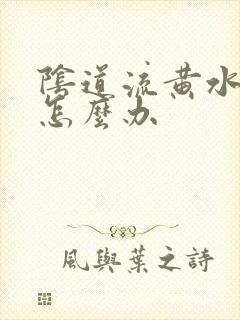 陰道流黄水
怎麼办
風與葉之詩